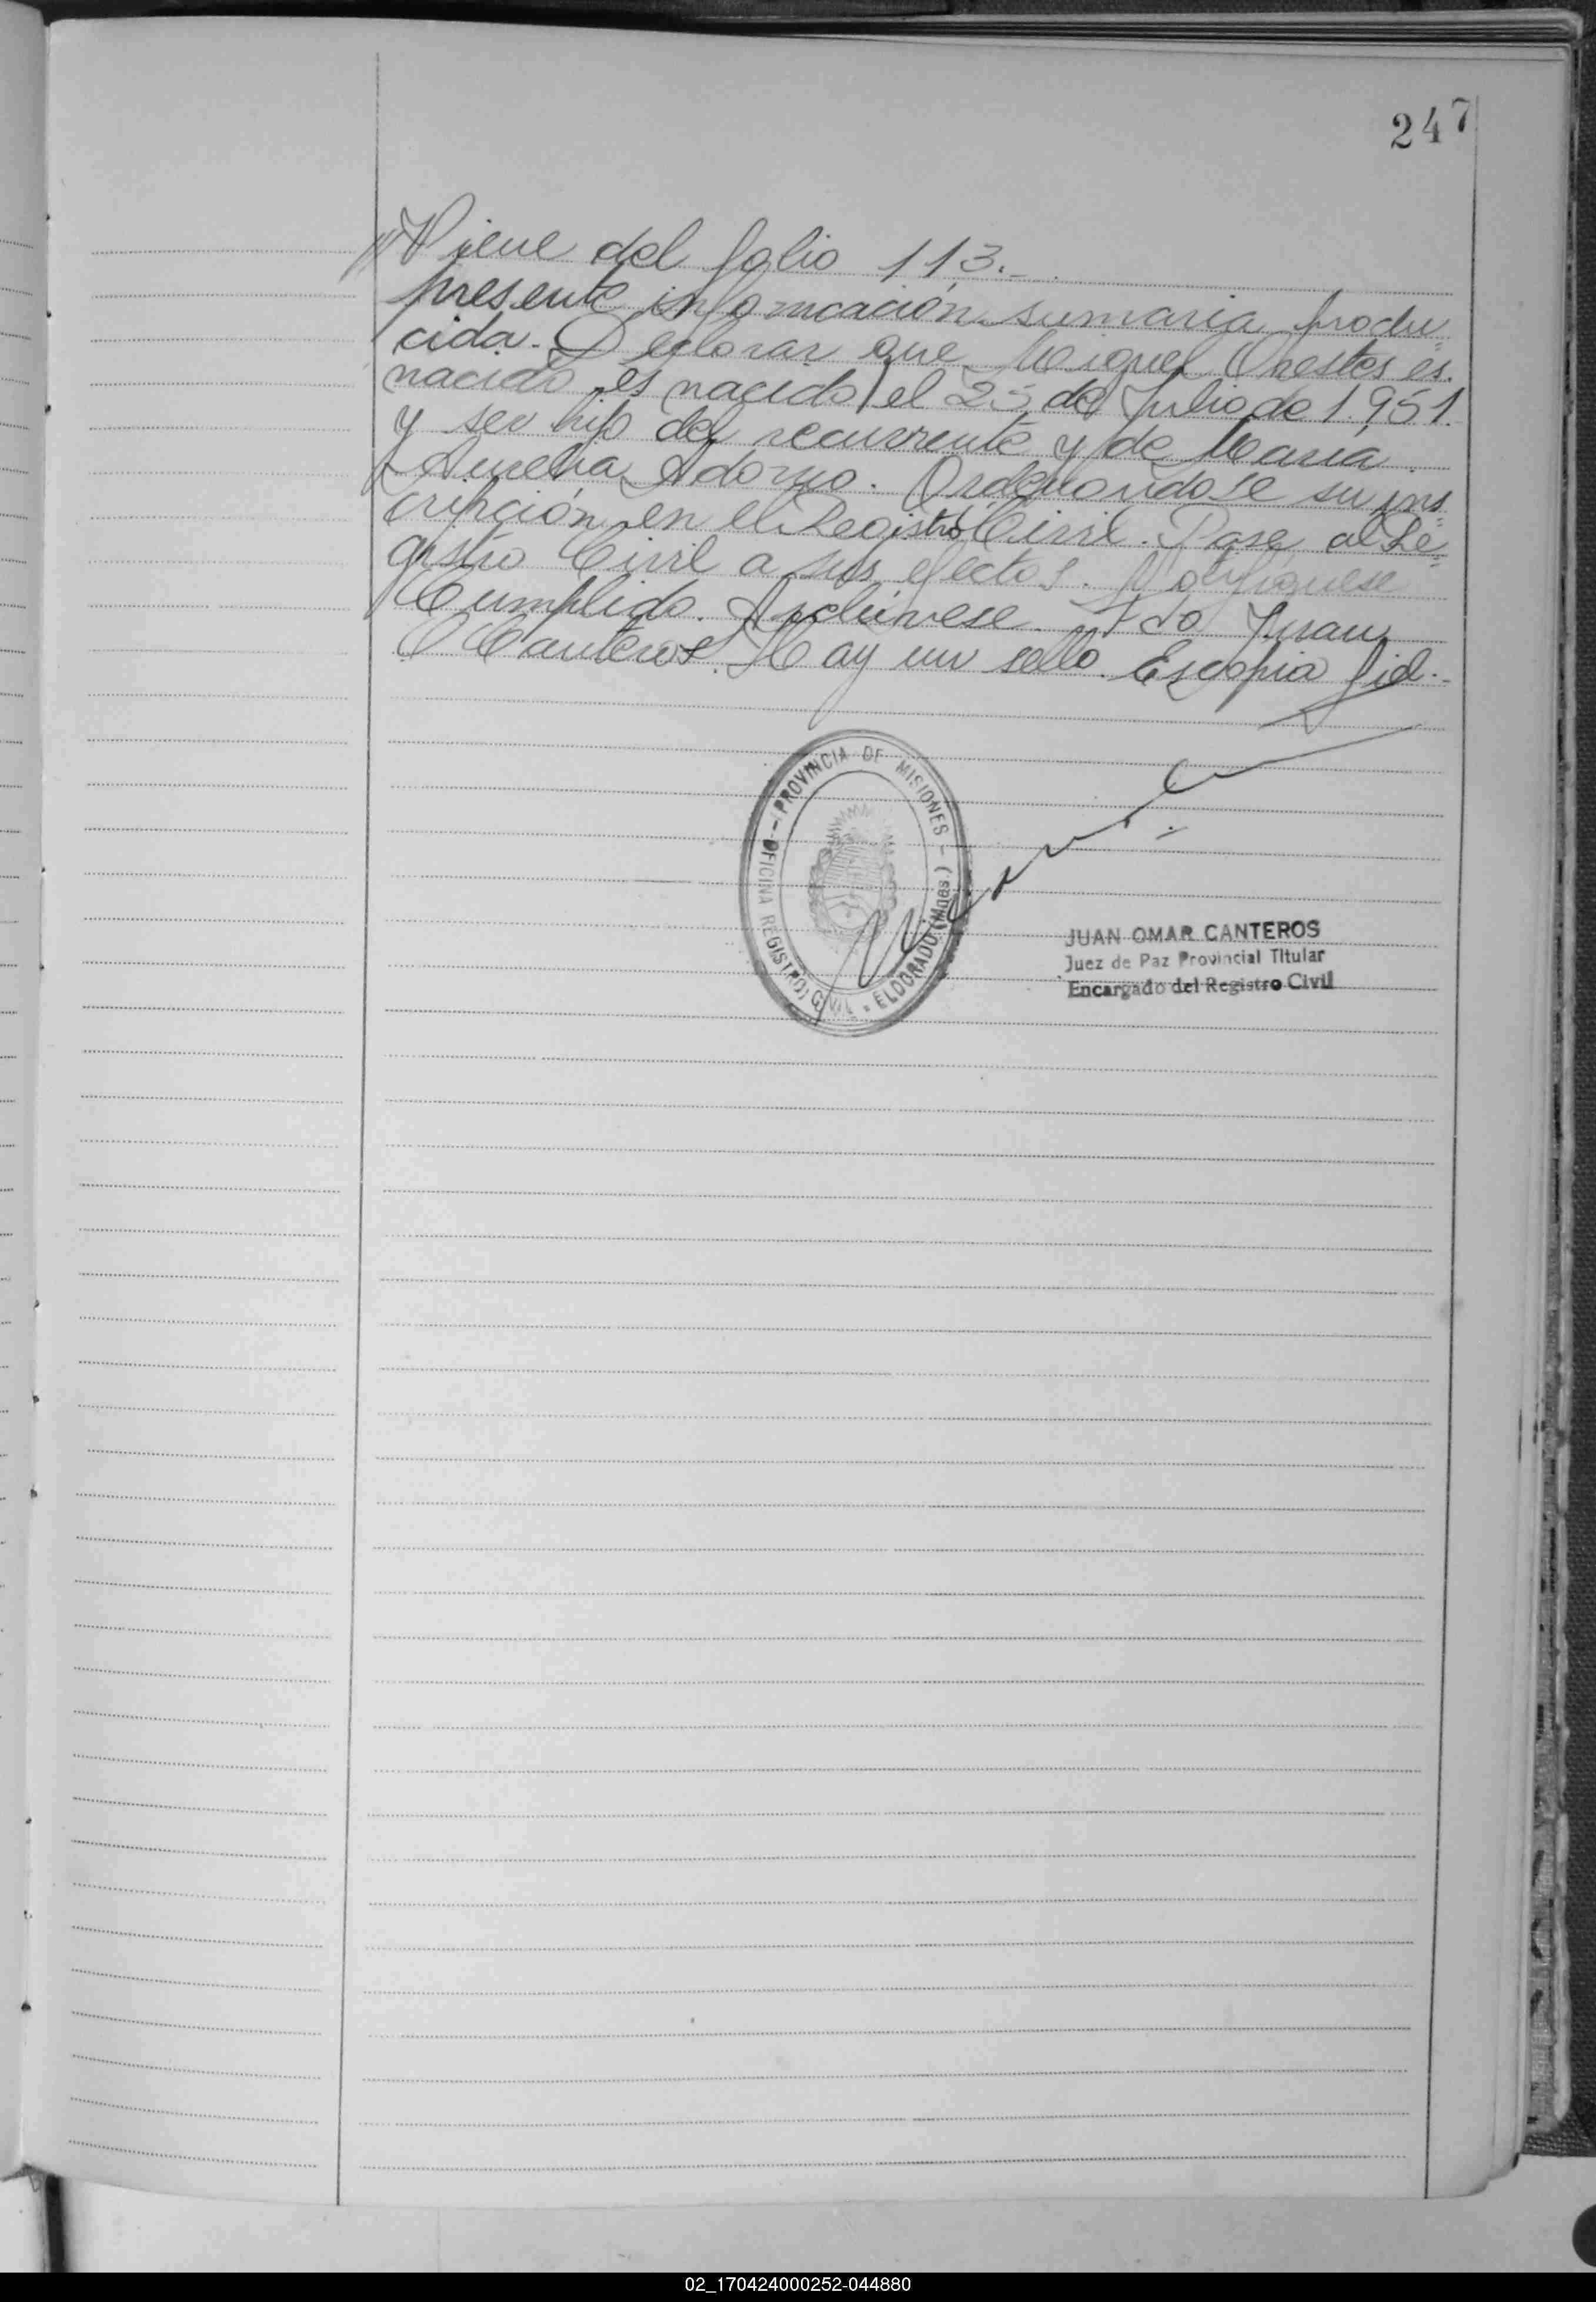 247
//Viene del folio 113.-
presente información sumaria produ=
cida. Declarar que Miguel Orestes es
nacido es nacido el 25 de Julio de 1.951.
y ser hijo del recurrente y de María
Aurelia Adorno. Ordenandose su ins=
cripción en el Registro Civil. Pase al Re=
gistro Civil a sus efectos. Notifíquese
Cumplido. Archívese. Fdo Juan
O Canteros. Hay un sello. Es copia fiel.-
PROVINCIA DE MISIONES - OFICINA REGISTRO CIVIL - ELDORADO (Mnes.)
JUAN OMAR CANTEROS
Juez de Paz Provincial Titular
Encargado del Registro Civil
02_170424000252-044880